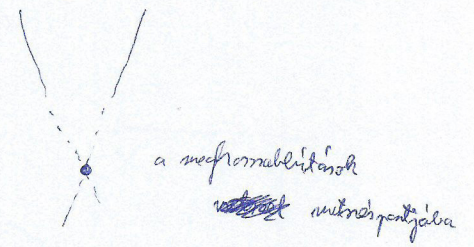 a meghosszabbítások
metszéspontjába